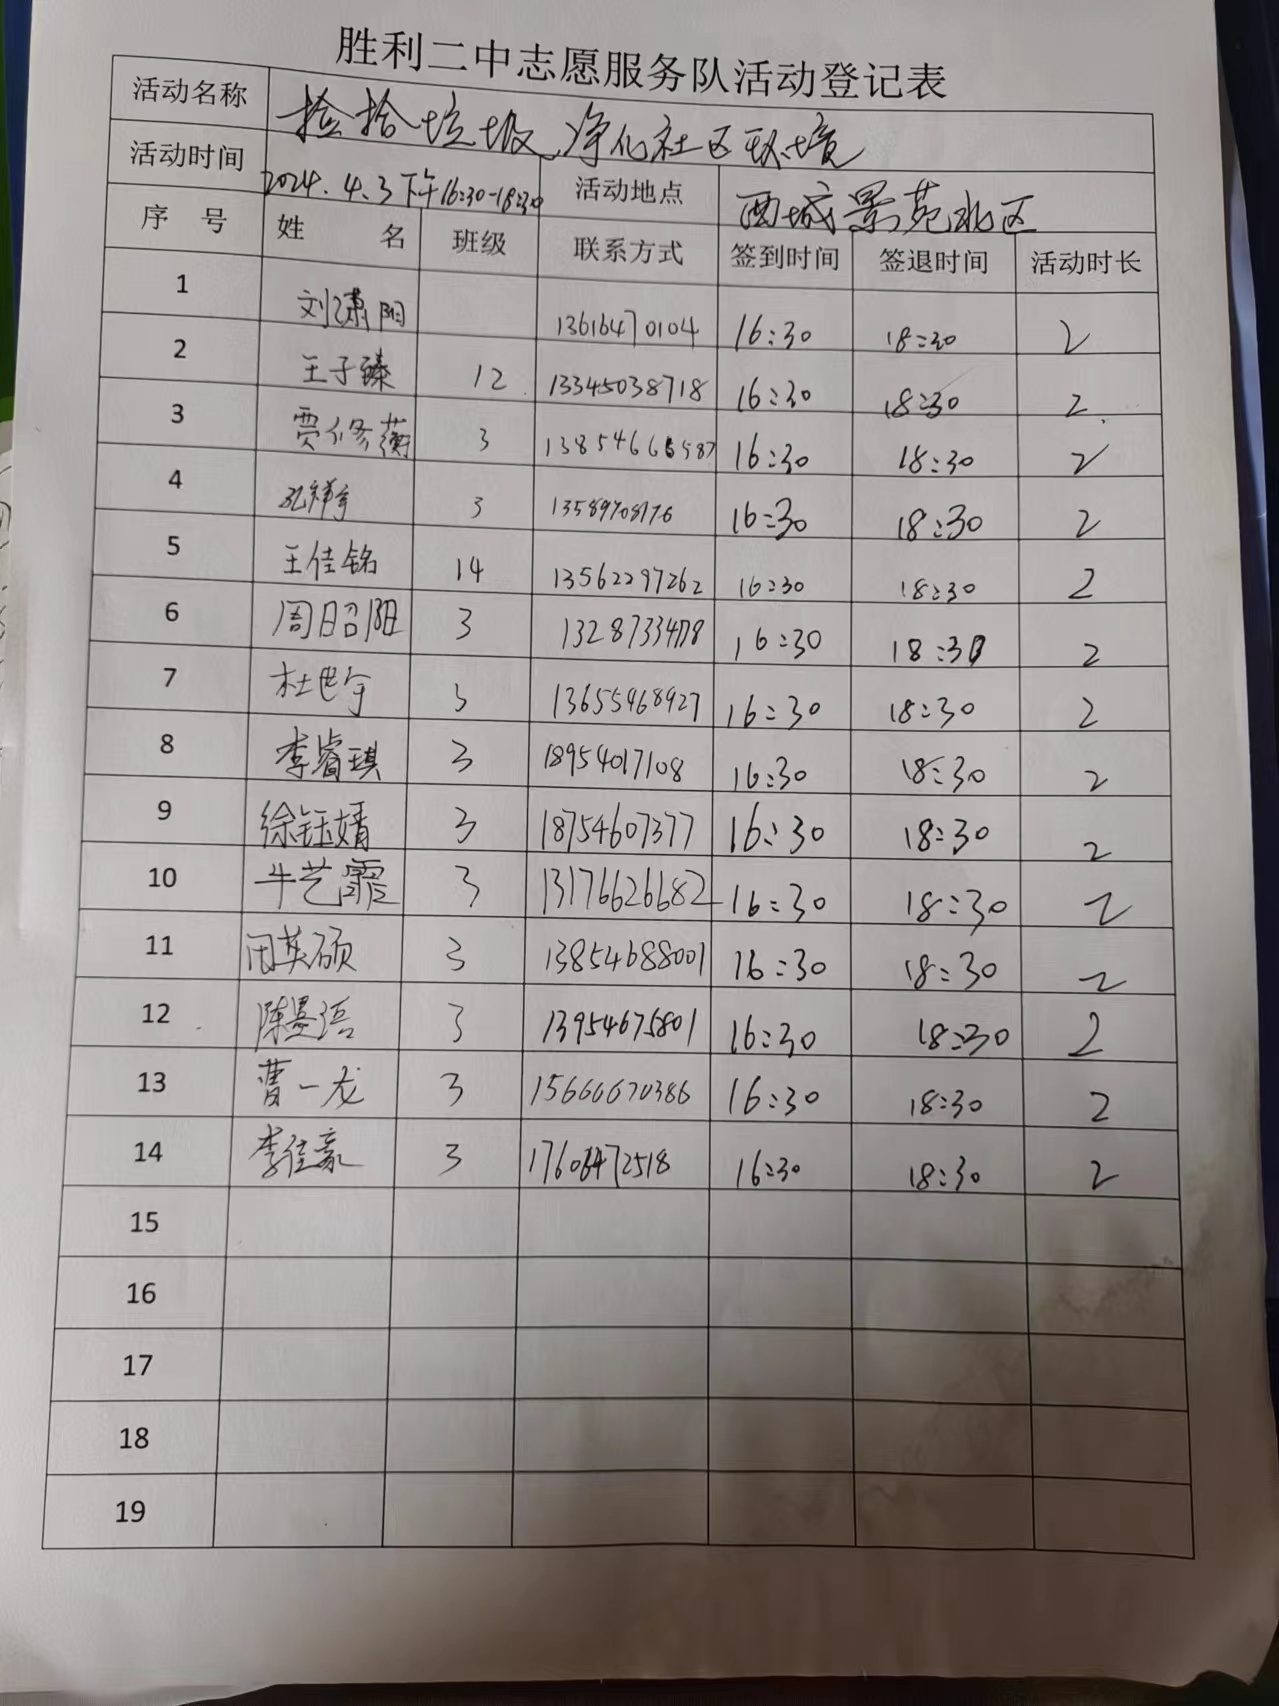 胜利二中志愿服务队活动登记表
活动名称 捡拾垃圾,净化社区环境
活动时间 2024.4.3下午16:30-18:30 活动地点 西城景苑北区
序号 姓名 班级 联系方式 签到时间 签退时间 活动时长
1 刘潇阳 13616470104 16:30 18:30 2
2 王子臻 12 13345038718 16:30 18:30 2
3 贾修蘅 3 13854666587 16:30 18:30 2
4 孔祥宇 3 13589708176 16:30 18:30 2
5 王佳铭 14 13562297262 16:30 18:30 2
6 周昭阳 3 1328733478 16:30 18:30 2
7 杜世宇 3 13655468927 16:30 18:30 2
8 李睿琪 3 18954017108 16:30 18:30 2
9 徐钰婧 3 18754607377 16:30 18:30 2
10 牛艺霏 3 13176626682 16:30 18:30 2
11 闭英硕 3 13854688001 16:30 18:30 2
12 陈墨语 3 13954675801 16:30 18:30 2
13 曹一龙 3 15666670386 16:30 18:30 2
14 李佳豪 3 16:30 18:30 2
15
16
17
18
19